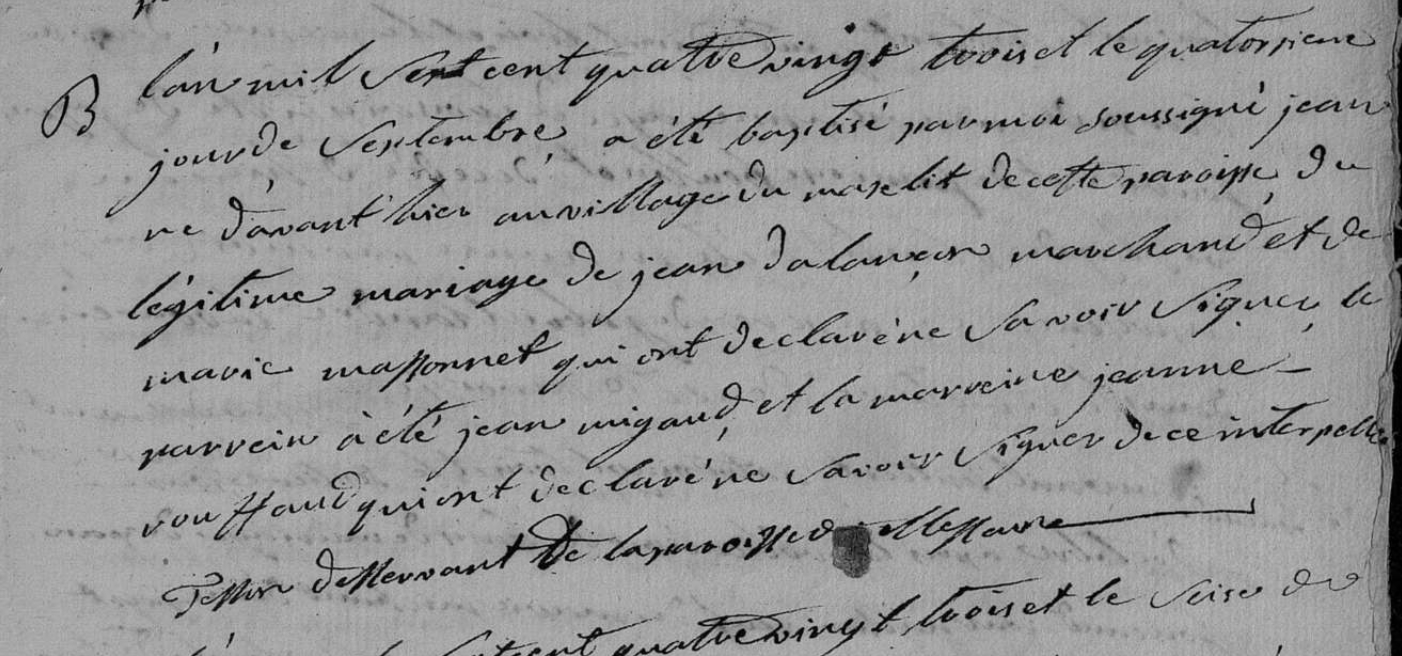 B
l'an mil sept cent quatre vingt trois et le quatorsieme
jour de septembre a été baptisé par moi soussigné jean
né d'avant hier au village du maselit de cette paroisse du
légitime mariage de jean dalançon marchand et de
marie massonnet qui ont declaré ne savoir signer le
parrein à été jean migaud et la marreine jeanne
rouffaud qui ont declaré ne savoir signer de ce interpellé
desservant de la paroisse
sept cent quatre vingt trois et le seise de